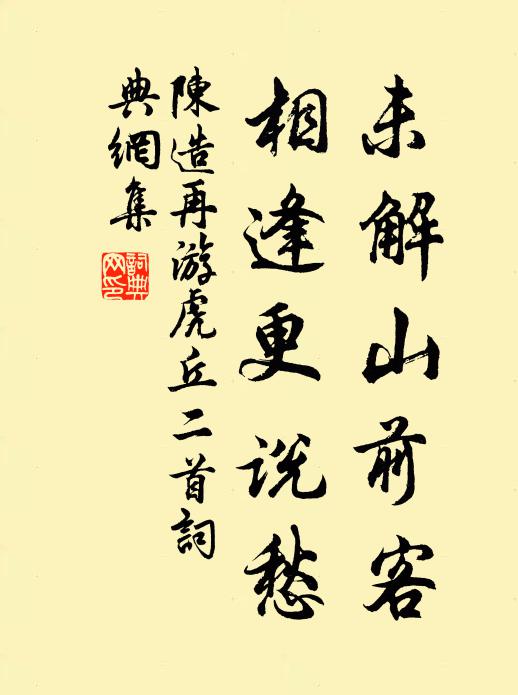 未解山前客
相逢更说愁
陳造再游虎丘二首詞
典網集
詞典
网印